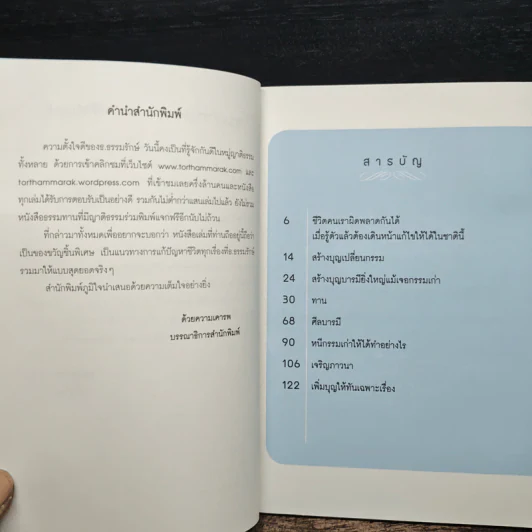 คำนำสำนักพิมพ์
ความตั้งใจดีของธ.ธรรมรักษ์ วันนี้คงเป็นที่รู้จักกันดีในหมู่ญาติธรรม
ทั้งหลาย ด้วยการเข้าคลิกชมที่เว็บไซต์ www.torthammarak.com และ
torthammarak.wordpress.com ที่เข้าชมเลยครึ่งล้านคนและหนังสือ
ทุกเล่มได้รับการตอบรับเป็นอย่างดี รวมกันไม่ต่ำกว่าแสนเล่มไปแล้ว ยังไม่รวม
หนังสือธรรมทานที่มีญาติธรรมร่วมพิมพ์แจกฟรีอีกนับไม่ถ้วน
ที่กล่าวมาทั้งหมดเพื่ออยากจะบอกว่า หนังสือเล่มที่ท่านถืออยู่นี้ถือว่า
เป็นของขวัญชิ้นพิเศษ เป็นแนวทางการแก้ปัญหาชีวิตทุกเรื่องที่ธ.ธรรมรักษ์
รวมมาให้แบบสุดยอดจริงๆ
สำนักพิมพ์ภูมิใจนำเสนอด้วยความเต็มใจอย่างยิ่ง
ด้วยความเคารพ
บรรณาธิการสำนักพิมพ์
สารบัญ
6 ชีวิตคนเรามีผิดพลาดกันได้
เมื่อรู้ตัวแล้วต้องเดินหน้าแก้ไขให้ได้ในชาตินี้
14 สร้างบุญเปลี่ยนกรรม
24 สร้างบุญบารมียิ่งใหญ่แม้เจอกรรมเก่า
30 ทาน
68 ศีลบารมี
90 หนีกรรมเก่าให้ได้ทำอย่างไร
106 เจริญภาวนา
122 เพิ่มบุญให้ทันเฉพาะเรื่อง